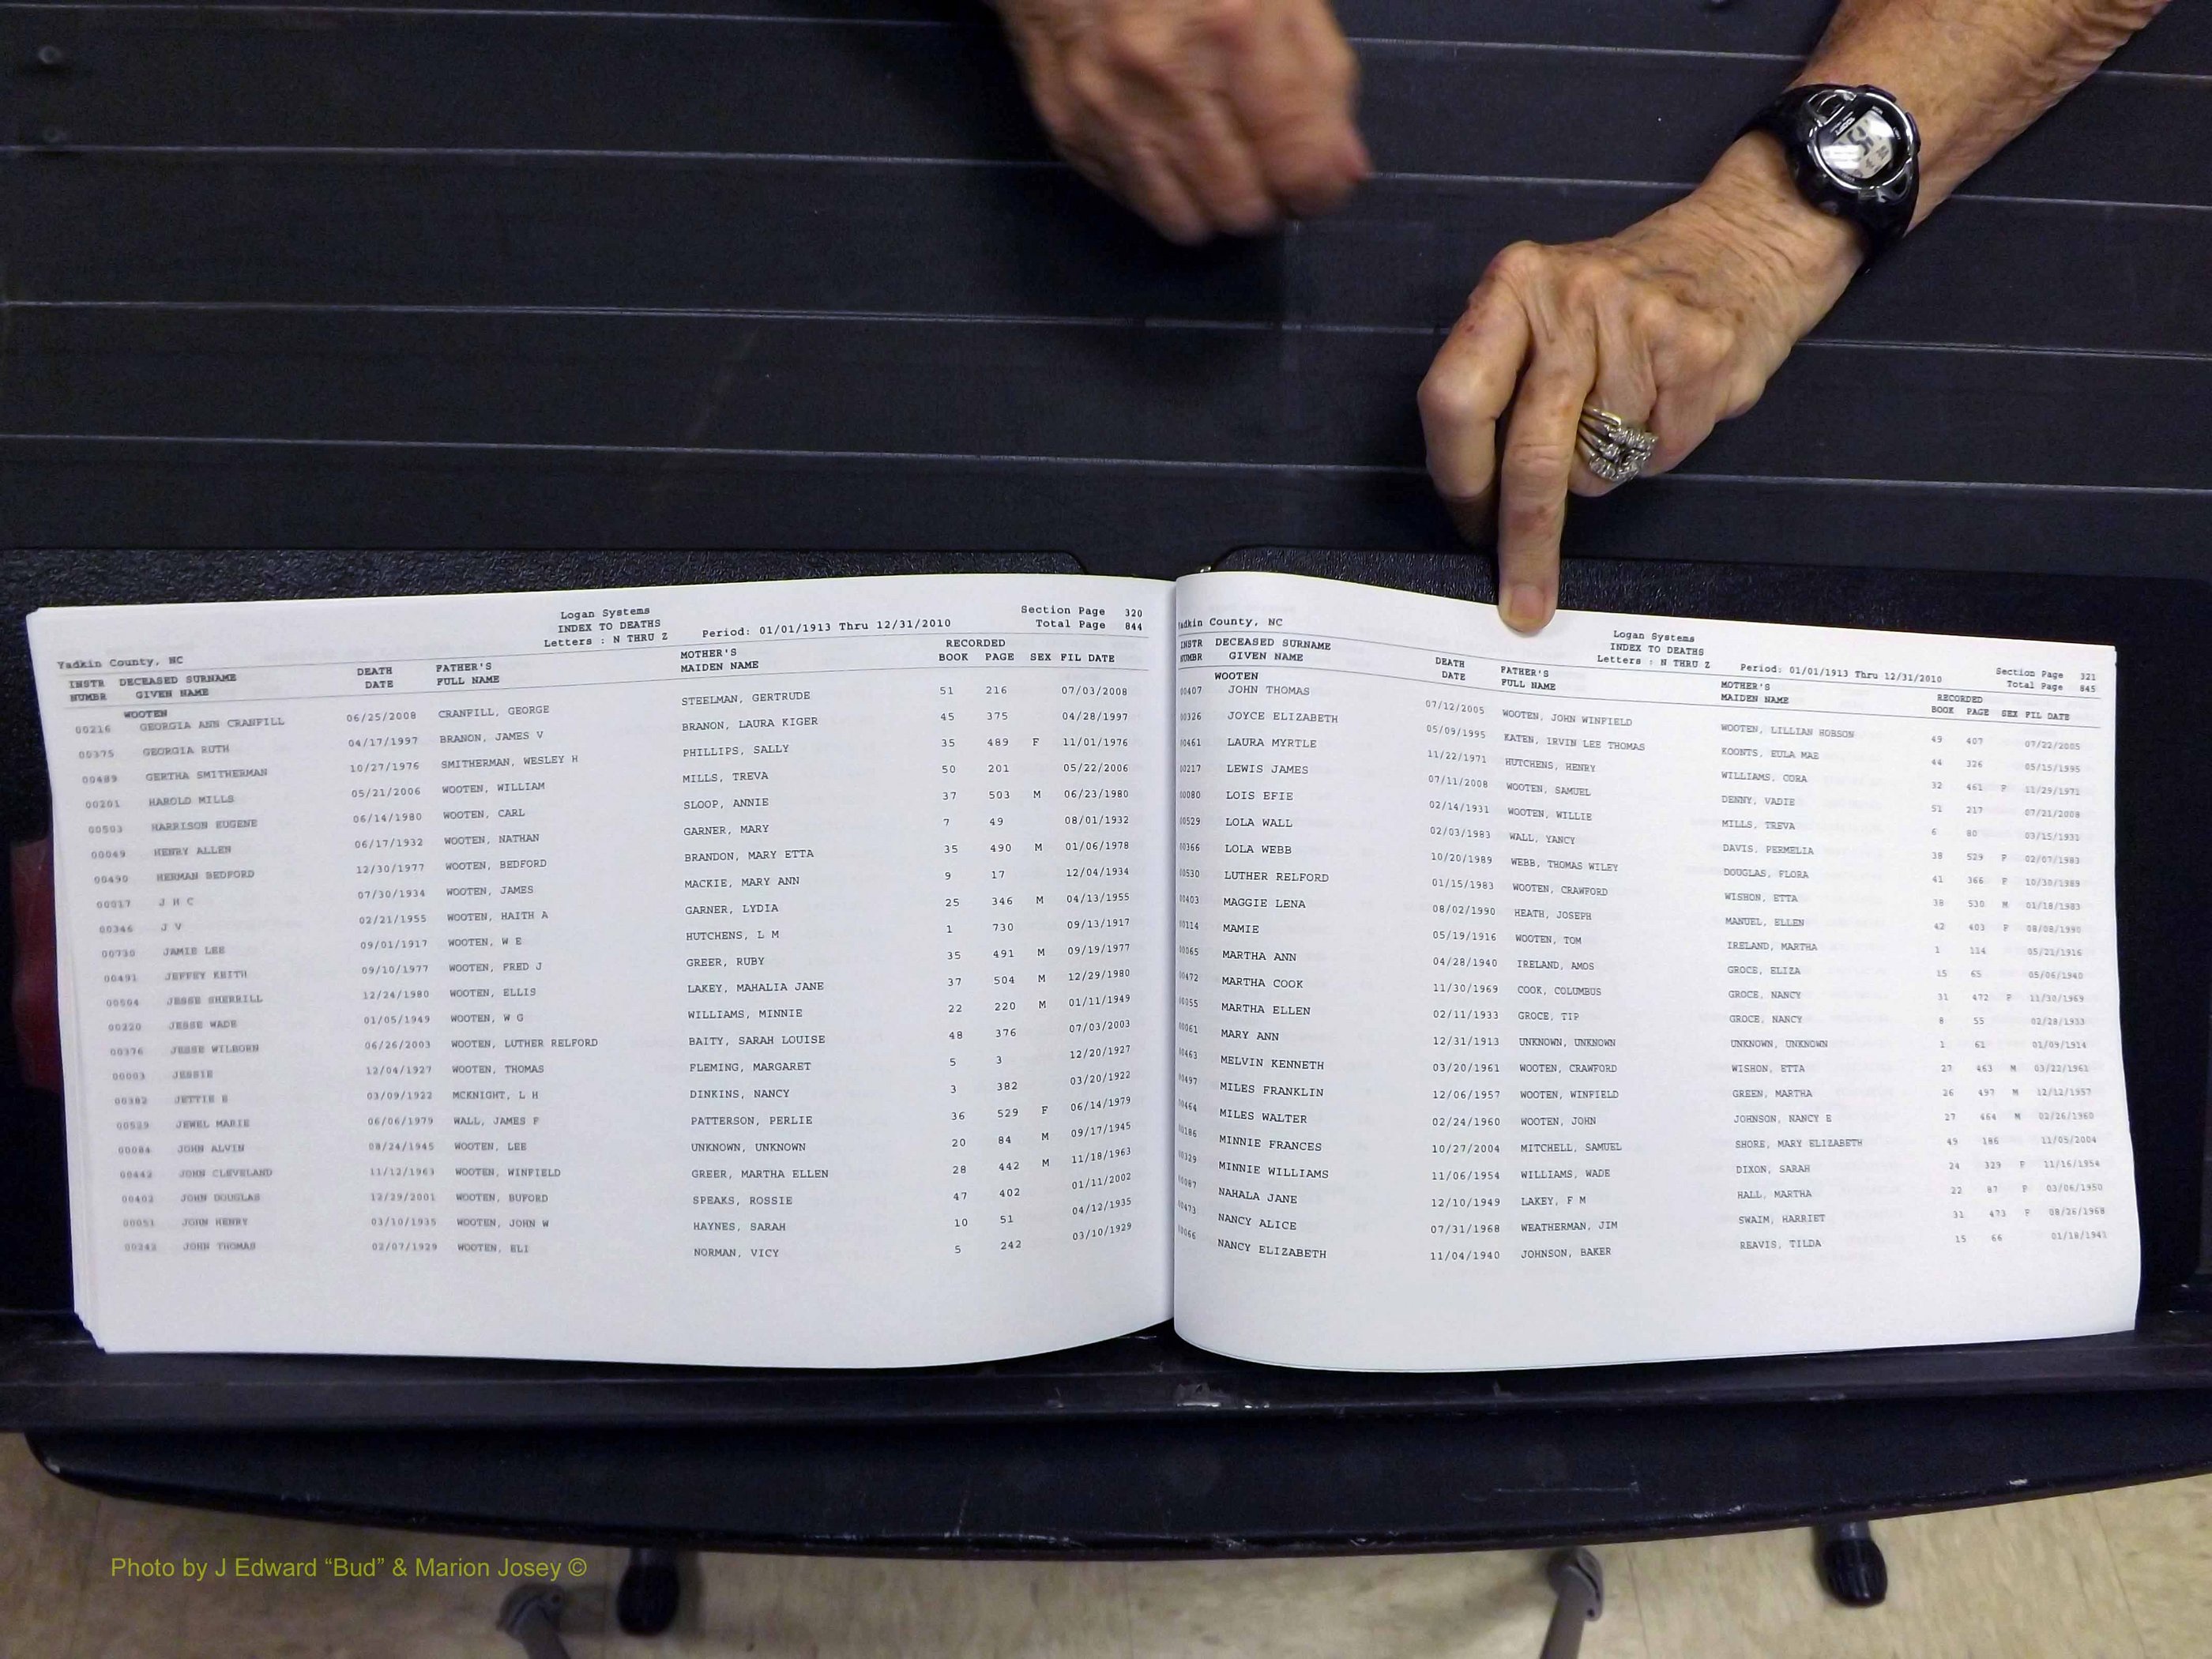 Logan Systems
INDEX TO DEATHS
Letters : N THRU Z
Period: 01/01/1913 Thru 12/31/2010
Section Page 320
Total Page 844
Yadkin County, NC
INSTR DECEASED SURNAME DEATH FATHER'S MOTHER'S RECORDED
NUMBR GIVEN NAME DATE FULL NAME MAIDEN NAME BOOK PAGE SEX FIL DATE
WOOTEN
00216 GEORGIA ANN CRANFILL 06/25/2008 CRANFILL, GEORGE STEELMAN, GERTRUDE 51 216 07/03/2008
00375 GEORGIA RUTH 04/17/1997 BRANON, JAMES V BRANON, LAURA KIGER 45 375 04/28/1997
00489 GERTHA SMITHERMAN 10/27/1976 SMITHERMAN, WESLEY H PHILLIPS, SALLY 35 489 F 11/01/1976
00201 HAROLD MILLS 05/21/2006 WOOTEN, WILLIAM MILLS, TREVA 50 201 05/22/2006
00503 HARRISON EUGENE 06/14/1980 WOOTEN, CARL SLOOP, ANNIE 37 503 M 06/23/1980
00049 HENRY ALLEN 06/17/1932 WOOTEN, NATHAN GARNER, MARY 7 49 08/01/1932
00490 HERMAN BEDFORD 12/30/1977 WOOTEN, BEDFORD BRANDON, MARY ETTA 35 490 M 01/06/1978
00017 J H C 07/30/1934 WOOTEN, JAMES MACKIE, MARY ANN 9 17 12/04/1934
00346 J V 02/21/1955 WOOTEN, HAITH A GARNER, LYDIA 25 346 M 04/13/1955
00730 JAMIE LEE 09/01/1917 WOOTEN, W E HUTCHENS, L M 1 730 09/13/1917
00491 JEFFEY KEITH 09/10/1977 WOOTEN, FRED J GREER, RUBY 35 491 M 09/19/1977
00504 JESSE SHERRILL 12/24/1980 WOOTEN, ELLIS LAKEY, MAHALIA JANE 37 504 M 12/29/1980
00220 JESSE WADE 01/05/1949 WOOTEN, W G WILLIAMS, MINNIE 22 220 M 01/11/1949
00376 JESSE WILBORN 06/26/2003 WOOTEN, LUTHER RELFORD BAITY, SARAH LOUISE 48 376 07/03/2003
00003 JESSIE 12/04/1927 WOOTEN, THOMAS FLEMING, MARGARET 5 3 12/20/1927
00382 JETTIE E 03/09/1922 MCKNIGHT, L H DINKINS, NANCY 3 382 03/20/1922
00529 JEWEL MARIE 06/06/1979 WALL, JAMES F PATTERSON, PERLIE 36 529 F 06/14/1979
00084 JOHN ALVIN 08/24/1945 WOOTEN, LEE UNKNOWN, UNKNOWN 20 84 M 09/17/1945
00442 JOHN CLEVELAND 11/12/1963 WOOTEN, WINFIELD GREER, MARTHA ELLEN 28 442 M 11/18/1963
00402 JOHN DOUGLAS 12/29/2001 WOOTEN, BUFORD SPEAKS, ROSSIE 47 402 01/11/2002
00051 JOHN HENRY 03/10/1935 WOOTEN, JOHN W HAYNES, SARAH 10 51 04/12/1935
00242 JOHN THOMAS 02/07/1929 WOOTEN, ELI NORMAN, VICY 5 242 03/10/1929
Yadkin County, NC
Logan Systems
INDEX TO DEATHS
Letters : N THRU Z
Period: 01/01/1913 Thru 12/31/2010
Section Page 321
Total Page 845
INSTR DECEASED SURNAME DEATH FATHER'S MOTHER'S RECORDED
NUMBR GIVEN NAME DATE FULL NAME MAIDEN NAME BOOK PAGE SEX FIL DATE
WOOTEN
00407 JOHN THOMAS 07/12/2005 WOOTEN, JOHN WINFIELD WOOTEN, LILLIAN HOBSON 49 407 07/22/2005
00326 JOYCE ELIZABETH 05/09/1995 KATEN, IRVIN LEE THOMAS KOONTS, EULA MAE 44 326 05/15/1995
00461 LAURA MYRTLE 11/22/1971 HUTCHENS, HENRY WILLIAMS, CORA 32 461 F 11/29/1971
00217 LEWIS JAMES 07/11/2008 WOOTEN, SAMUEL DENNY, VADIE 51 217 07/21/2008
00080 LOIS EFIE 02/14/1931 WOOTEN, WILLIE MILLS, TREVA 6 80 03/15/1931
00529 LOLA WALL 02/03/1983 WALL, YANCY DAVIS, PERMELIA 38 529 F 02/07/1983
00366 LOLA WEBB 10/20/1989 WEBB, THOMAS WILEY DOUGLAS, FLORA 41 366 F 10/30/1989
00530 LUTHER RELFORD 01/15/1983 WOOTEN, CRAWFORD WISHON, ETTA 38 530 M 01/18/1983
00403 MAGGIE LENA 08/02/1990 HEATH, JOSEPH MANUEL, ELLEN 42 403 F 08/08/1990
00114 MAMIE 05/19/1916 WOOTEN, TOM IRELAND, MARTHA 1 114 05/21/1916
00065 MARTHA ANN 04/28/1940 IRELAND, AMOS GROCE, ELIZA 15 65 05/06/1940
00472 MARTHA COOK 11/30/1969 COOK, COLUMBUS GROCE, NANCY 31 472 F 11/30/1969
00055 MARTHA ELLEN 02/11/1933 GROCE, TIP GROCE, NANCY 8 55 02/28/1933
00061 MARY ANN 12/31/1913 UNKNOWN, UNKNOWN UNKNOWN, UNKNOWN 1 61 01/09/1914
00463 MELVIN KENNETH 03/20/1961 WOOTEN, CRAWFORD WISHON, ETTA 27 463 M 03/22/1961
00497 MILES FRANKLIN 12/06/1957 WOOTEN, WINFIELD GREEN, MARTHA 26 497 M 12/12/1957
00464 MILES WALTER 02/24/1960 WOOTEN, JOHN JOHNSON, NANCY E 27 464 M 02/26/1960
00186 MINNIE FRANCES 10/27/2004 MITCHELL, SAMUEL SHORE, MARY ELIZABETH 49 186 11/05/2004
00329 MINNIE WILLIAMS 11/06/1954 WILLIAMS, WADE DIXON, SARAH 24 329 F 11/16/1954
00087 NAHALA JANE 12/10/1949 LAKEY, F M HALL, MARTHA 22 87 F 03/06/1950
00473 NANCY ALICE 07/31/1968 WEATHERMAN, JIM SWAIM, HARRIET 31 473 F 08/26/1968
00066 NANCY ELIZABETH 11/04/1940 JOHNSON, BAKER REAVIS, TILDA 15 66 01/18/1941
Photo by J Edward “Bud” & Marion Josey ©